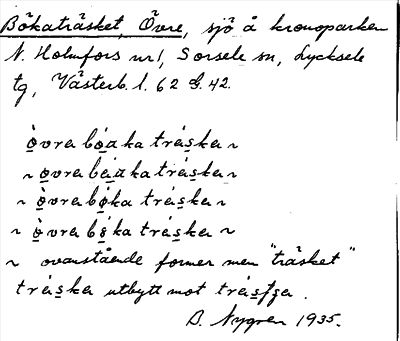 Bökaträsket, Övre, sjö å kronoparken
N. Holmfors nr 1, Sorsele sn, Lycksele
tg, Västerb. l. 62 G. 42.
òvra bóaka tráska ~
~ òvra báaka tráska ~
~ òvra bóka tráska ~
~ òvra bóka tráska ~
~ ovanstående former men "träsket"
tráska utbytt mot
B. Nygren 1935.